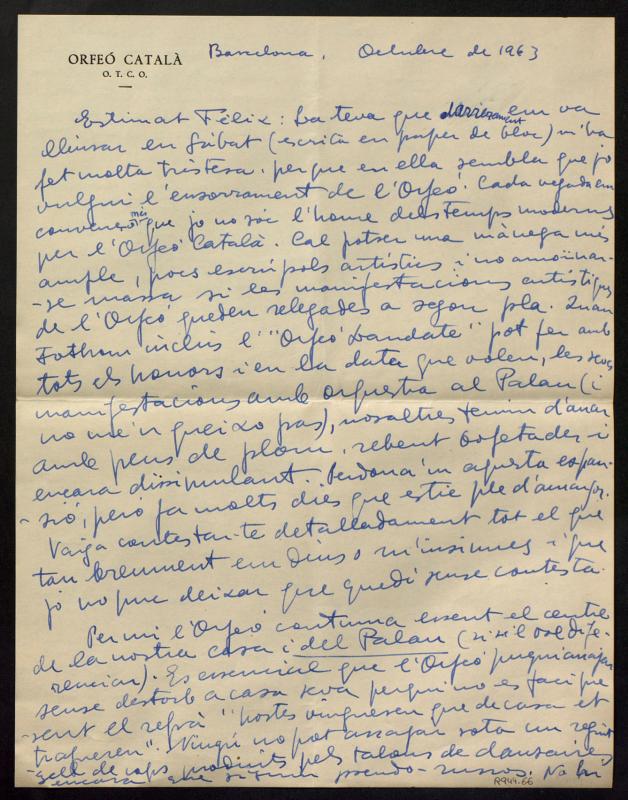 ORFEÓ CATALÀ
O. T. C. O.
Barcelona, Octubre de 1963
Estimat Fèlix: La teva que darrerament em va
lliurar en Sàbat (escrita en paper de bloc) m'ha
fet molta tristesa, perque en ella sembla que jo
vulgui l'ensorrament de l'Orfeó. Cada vegada em
convenço més que jo no sóc l'home dels temps moderns
per l'Orfeó Català. Cal potser una mànega més
ample, pocs escrúpols artístics i no amoïnar-
-se massa si les manifestacions artístiques
de l'Orfeó queden relegades a segon pla. Quan
tothom inclús l'"Orfeó Laudate" pot fer amb
tots els honors i en la data que volen, les seves
manifestacions amb orquestra al Palau (i
no me'n queixo pas), nosaltres tenim d'anar
amb peus de plom, rebent bofetades i
encara dissimulant. Perdona'm aquesta expan-
-sió, però fa molts dies que estic ple d'amargor.
Vaig a contestar-te detalladament tot el que
tan breument em dius o m'insinues i que
jo no puc deixar que quedi sense contesta.
Per mi l'Orfeó continua essent el centre
de la nostra casa i del Palau (si s'el vol dife-
renciar). Es essencial que l'Orfeó pugui assajar
sense destorb a casa seva perqui no es faci pre
-sent el refrà "hostes vingueren que de casa et
tragueren". Ningú no pot assajar sota un regit
-zell de cops produits pels talons de dansaires
encara que siguin pseudo-russos. No hi
R944.66